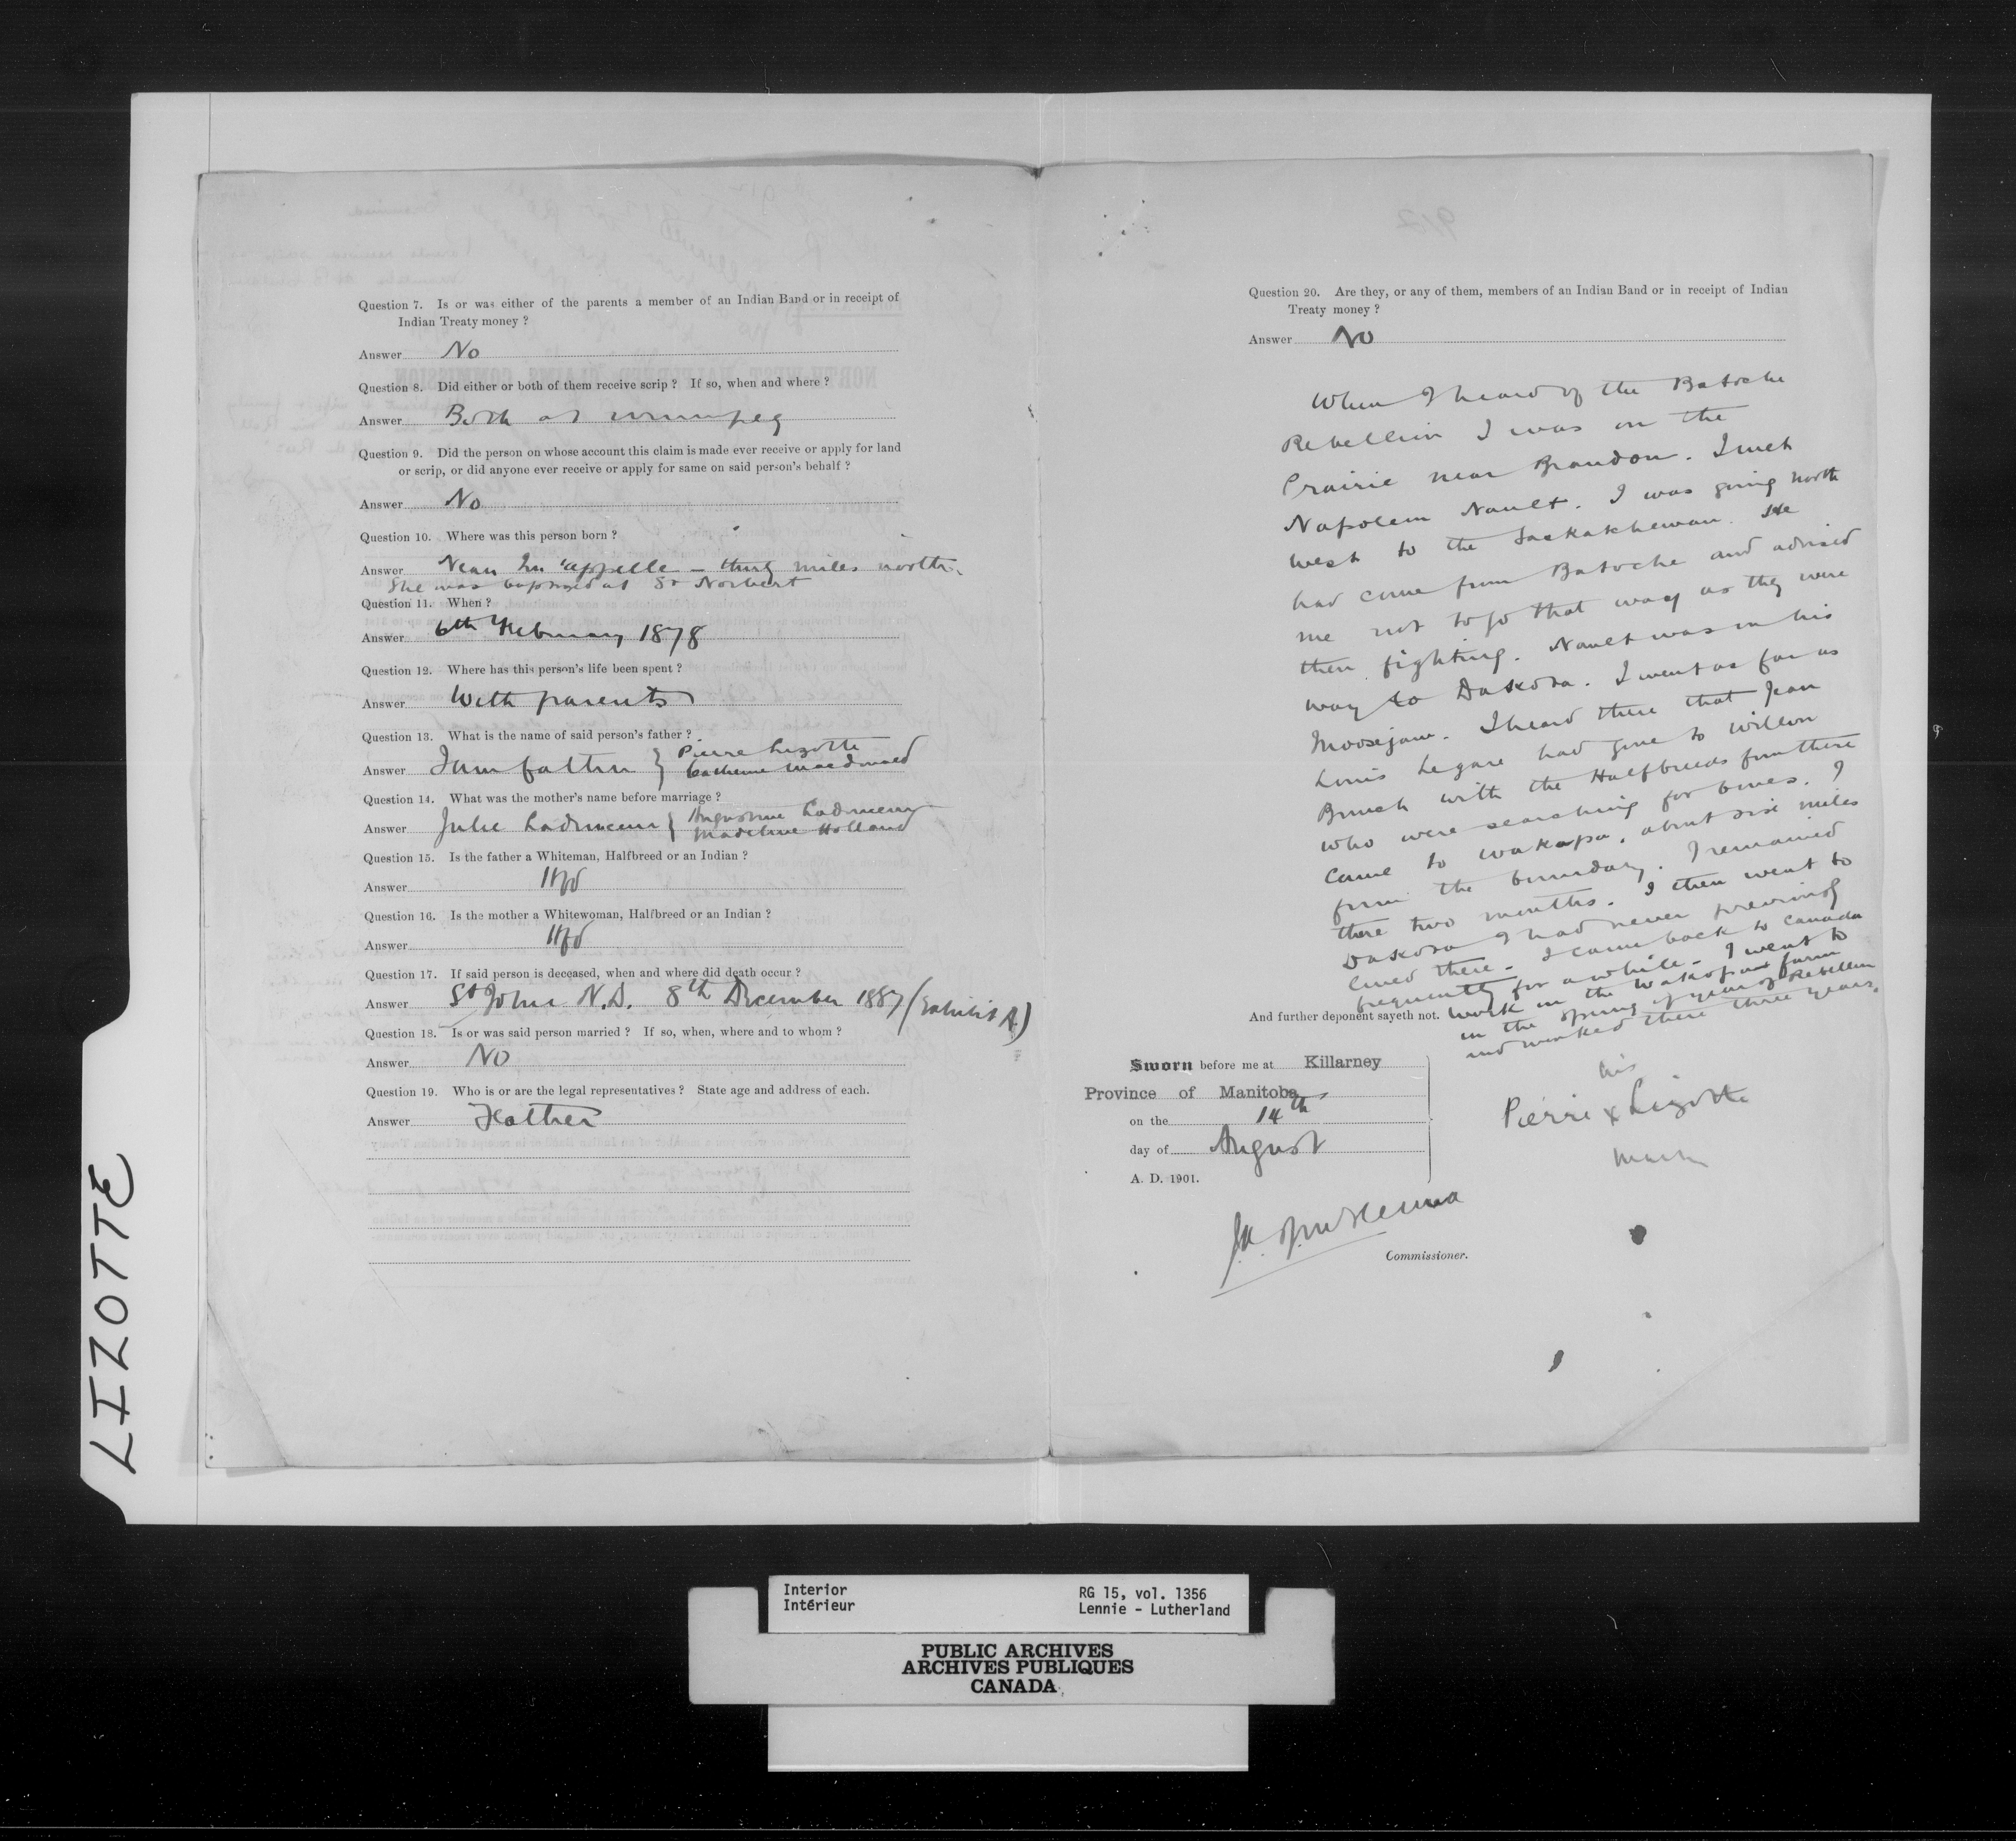 Question 7. Is or was either of the parents a member of an Indian Band or in receipt of
Indian Treaty money ?
Answer No
Question 8. Did either or both of them receive scrip ? If so, when and where ?
Answer Both at Winnipeg
Question 9. Did the person on whose account this claim is made ever receive or apply for land
or scrip, or did anyone ever receive or apply for same on said person's behalf ?
Answer No
Question 10. Where was this person born ?
Answer Near Qu'appelle - thirty miles north.
She was baptised at St Norbert
Question 11. When ?
Answer 6th February 1878
Question 12. Where has this person's life been spent ?
Answer With parents
Question 13. What is the name of said person's father ?
Answer I am father } Pierre Lizotte
Catherine Macdonald
Question 14. What was the mother's name before marriage ?
Answer Julie Ladouceur { Augustine Ladouceur
Madeline Holland
Question 15. Is the father a Whiteman, Halfbreed or an Indian ?
Answer Hfbd
Question 16. Is the mother a Whitewoman, Halfbreed or an Indian ?
Answer Hfbd
Question 17. If said person is deceased, when and where did death occur ?
Answer St John N.D. 8th December 1887 (Exhibit A.)
Question 18. Is or was said person married ? If so, when, where and to whom ?
Answer No
Question 19. Who is or are the legal representatives ? State age and address of each.
Answer Father
Question 20. Are they, or any of them, members of an Indian Band or in receipt of Indian
Treaty money ?
Answer No
When I heard of the Batoche
Rebellion I was on the
Prairie near Brandon. I met
Napoleon Nault. I was going north
west to the Saskatchewan. He
had come from Batoche and advised
me not to go that way as they were
then fighting. Nault was on his
way to Dakota. I went as far as
Moosejaw. I heard there that Jean
Louis Legare had gone to Willow
Bunch with the Halfbreeds from there
who were searching for bones. I
came to Wakopa, about six miles
from the boundary. I remained
there two months. I then went to
Dakota I had never previously
lived there. I came back to Canada
frequently for awhile. I went to
And further deponent sayeth not. work on the Wakopa farm
in the spring of year of Rebellion
and worked there three years.
Sworn before me at Killarney
Province of Manitoba
on the 14th
day of August
A. D. 1901.
his
Pierre x Lizotte
mark
Commissioner.
LIZOTTE
Interior
Intérieur
RG 15, vol. 1356
Lennie - Lutherland
PUBLIC ARCHIVES
ARCHIVES PUBLIQUES
CANADA